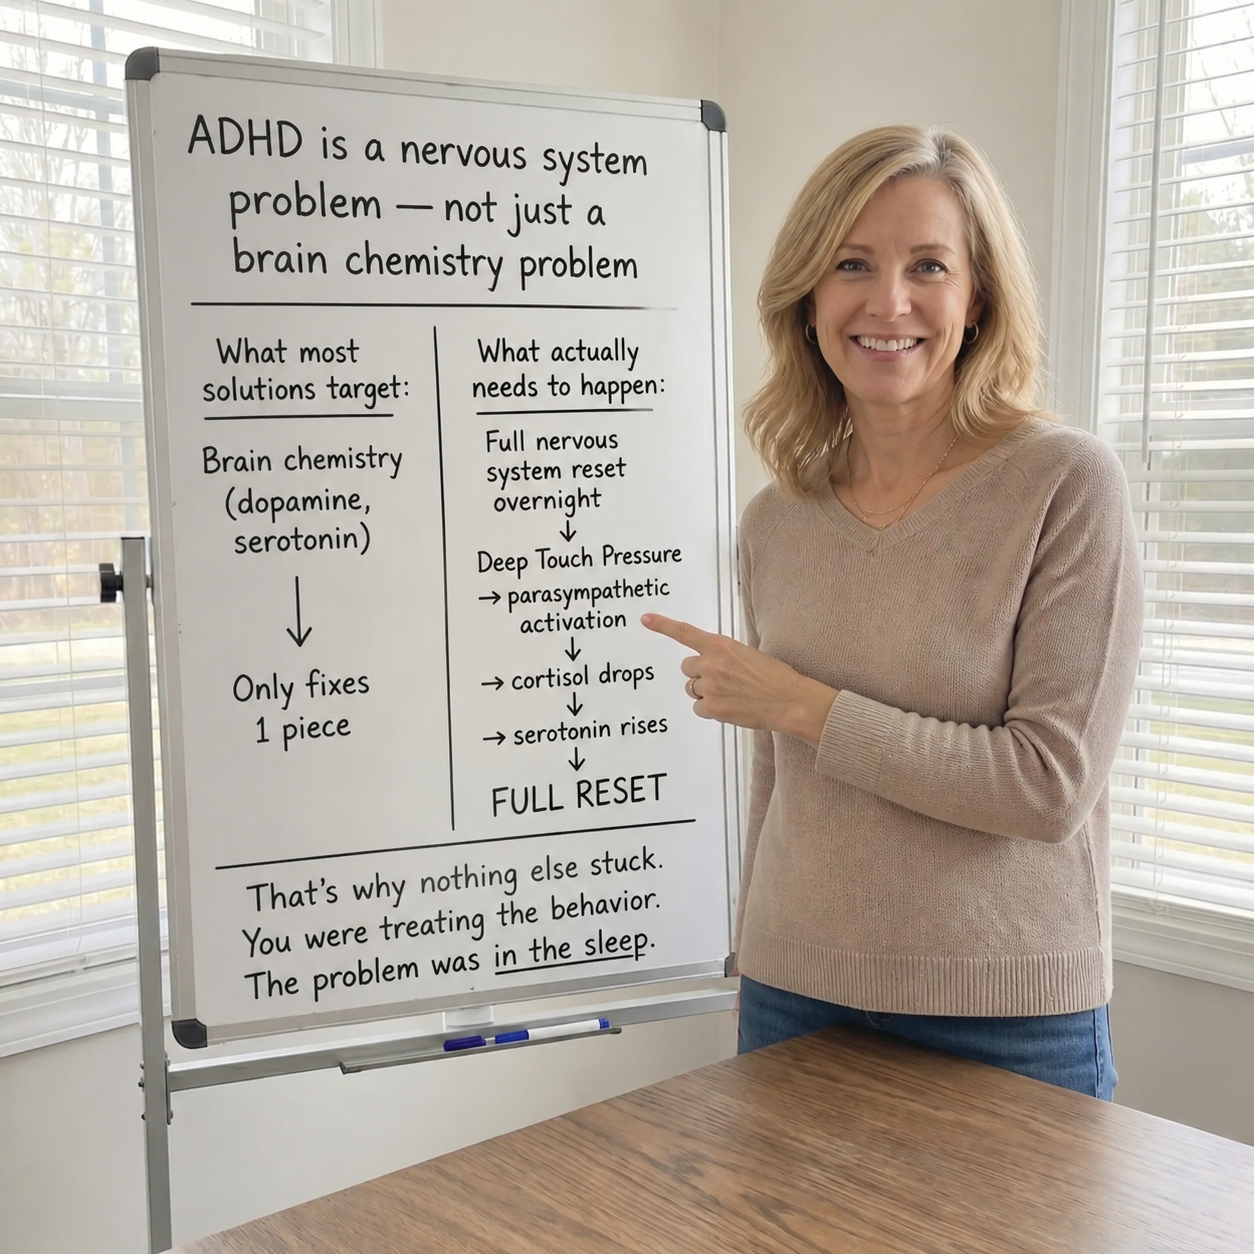 ADHD is a nervous system
problem — not just a
brain chemistry problem
What most
solutions target:
Brain chemistry
(dopamine,
serotonin)
↓
Only fixes
1 piece
What actually
needs to happen:
Full nervous
system reset
overnight
↓
Deep Touch Pressure
→ parasympathetic
activation
↓
→ cortisol drops
↓
→ serotonin rises
↓
FULL RESET
That's why nothing else stuck.
You were treating the behavior.
The problem was in the sleep.